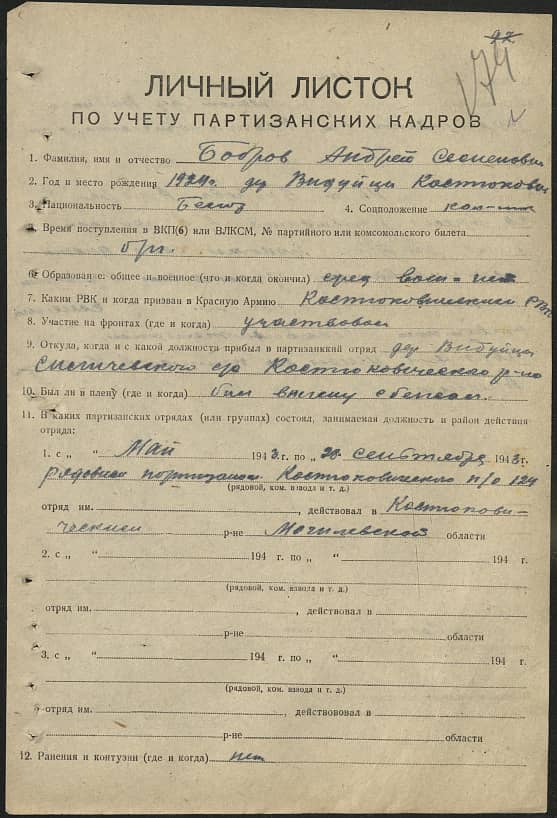 97
174
ЛИЧНЫЙ ЛИСТОК
ПО УЧЕТУ ПАРТИЗАНСКИХ КАДРОВ
1. Фамилия, имя и отчество Бобров Андрей Семенович
2. Год и место рождения дер Видуйцы Костюкович
3. Национальность Белор 4. Соцположение
5. Время поступления в ВКП(б) или ВЛКСМ, № партийного или комсомольского билета
б/п.
6. Образование: общее и военное (что и когда окончил) сред воен – нет
7. Каким РВК и когда призван в Красную Армию Костюковичским РВК
8. Участие на фронтах (где и когда) участвовал
9. Откуда, когда и с какой должности прибыл в партизанский отряд дер Видуйцы
с/со Костюковического р-на
10. Был ли в плену (где и когда) был в плену сбежал.
11. В каких партизанских отрядах (или группах) состоял, занимаемая должность и район действия
отряда:
1. с „ “ Май 1943 г. по „ 28 “ сентября 1943 г.
рядовым партизаном Костюковичского п/о 124
(рядовой, ком. взвода и т. д.)
отряд им. , действовал в Костюкови-
ческом р-не Могилевской области
2. с „ “ 194 г. по „ “ 194 г.
(рядовой, ком. взвода и т. д.)
отряд им. , действовал в
р-не области
3. с „ “ 194 г. по „ “ 194 г.
(рядовой, ком. взвода и т. д.)
отряд им. , действовал в
р-не области
12. Ранения и контузии (где и когда) нет